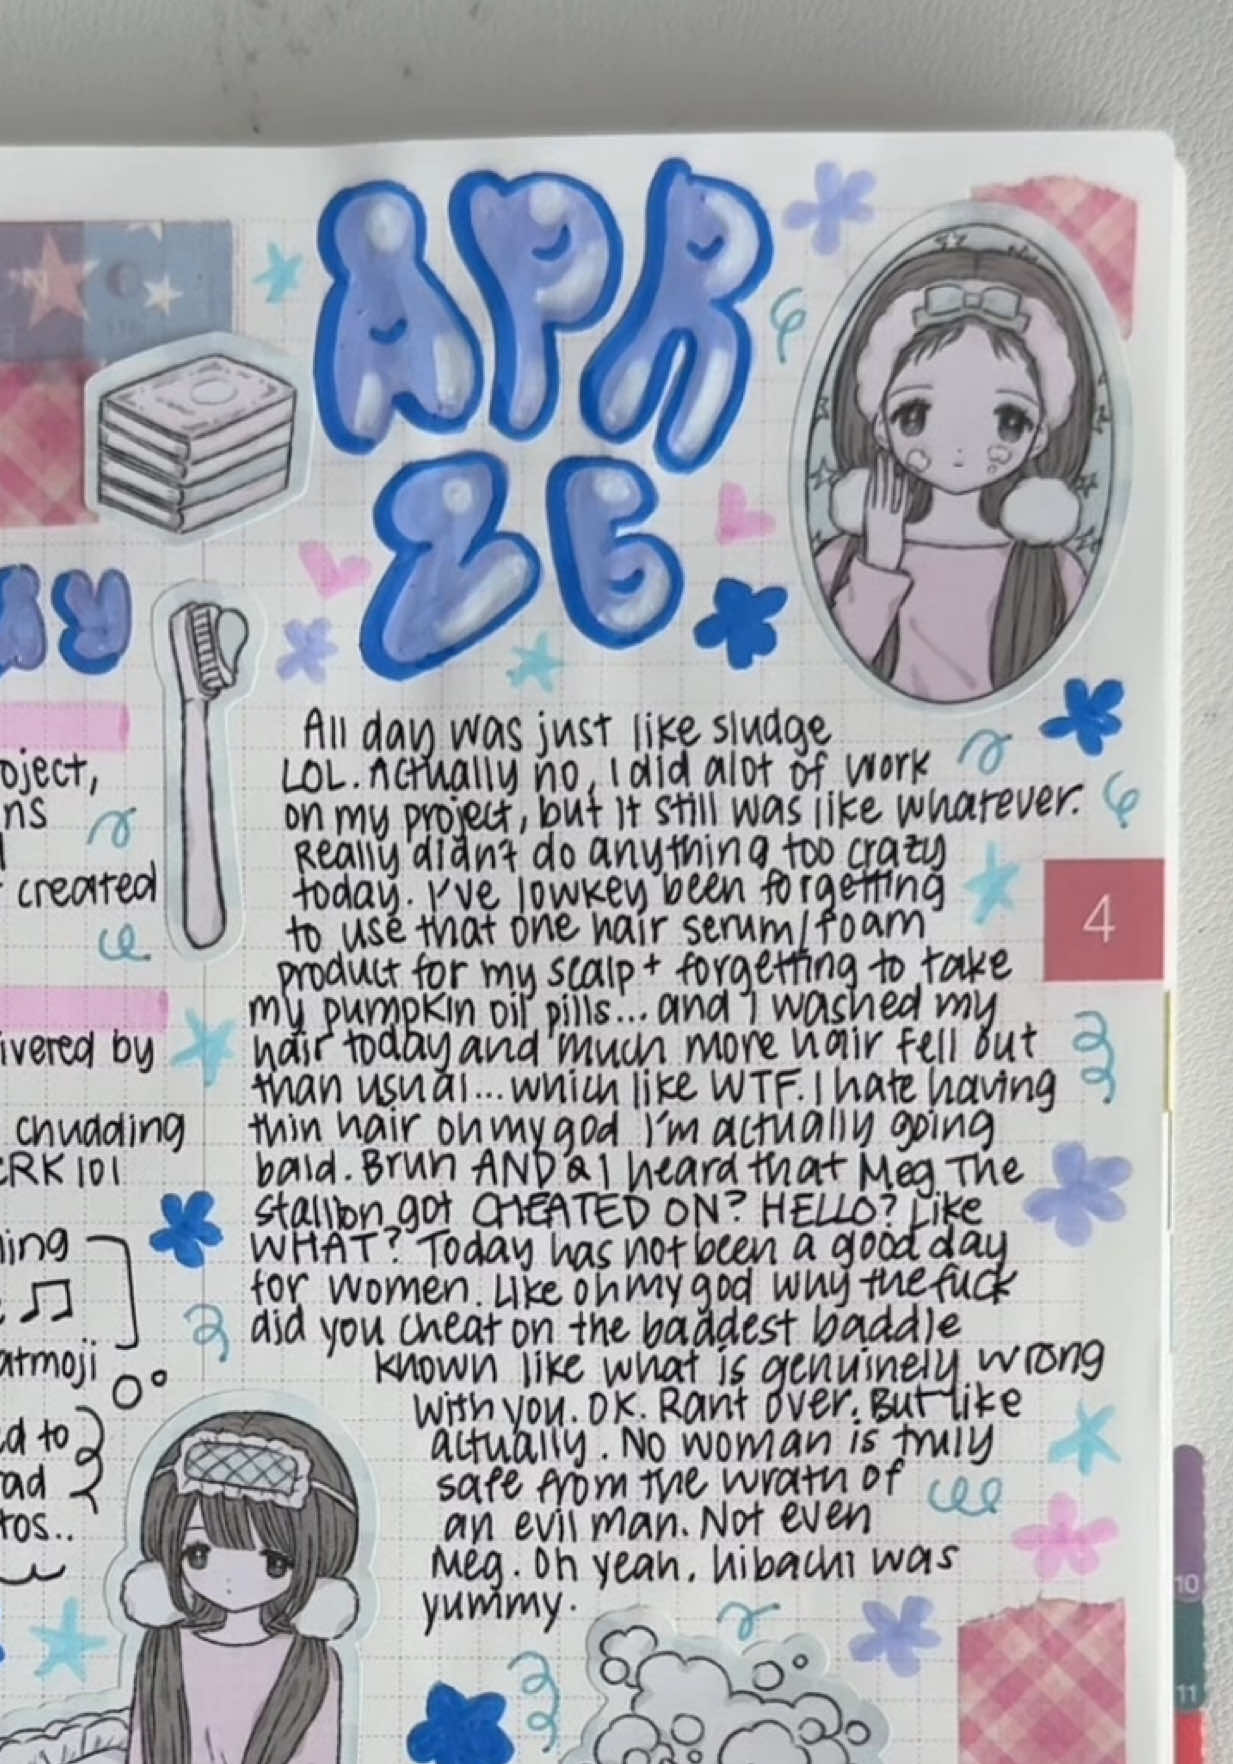 APR
26
AY
oject,
ns
created
ivered by
chudding
ERK 101
ning
atmoji
ed to
rad
tos..
All day was just like sludge
LOL. Actually no, I did alot of work
on my project, but it still was like whatever.
Really didn't do anything too crazy
today. I've lowkey been forgetting
to use that one hair serum/foam
product for my scalp + forgetting to take
my pumpkin oil pills... and I washed my
hair today and much more hair fell out
than usual... which like WTF. I hate having
thin hair ohmygod I'm actually going
bald. Bruh AND I heard that Meg The
Stallion got CHEATED ON? HELLO? Like
WHAT? Today has not been a good day
for women. Like ohmygod why the fuck
did you cheat on the baddest baddie
known like what is genuinely wrong
with you. OK. Rant over. But like
actually. No woman is truly
safe from the wrath of
an evil man. Not even
Meg. Oh yeah, hibachi was
yummy.
4
10
11